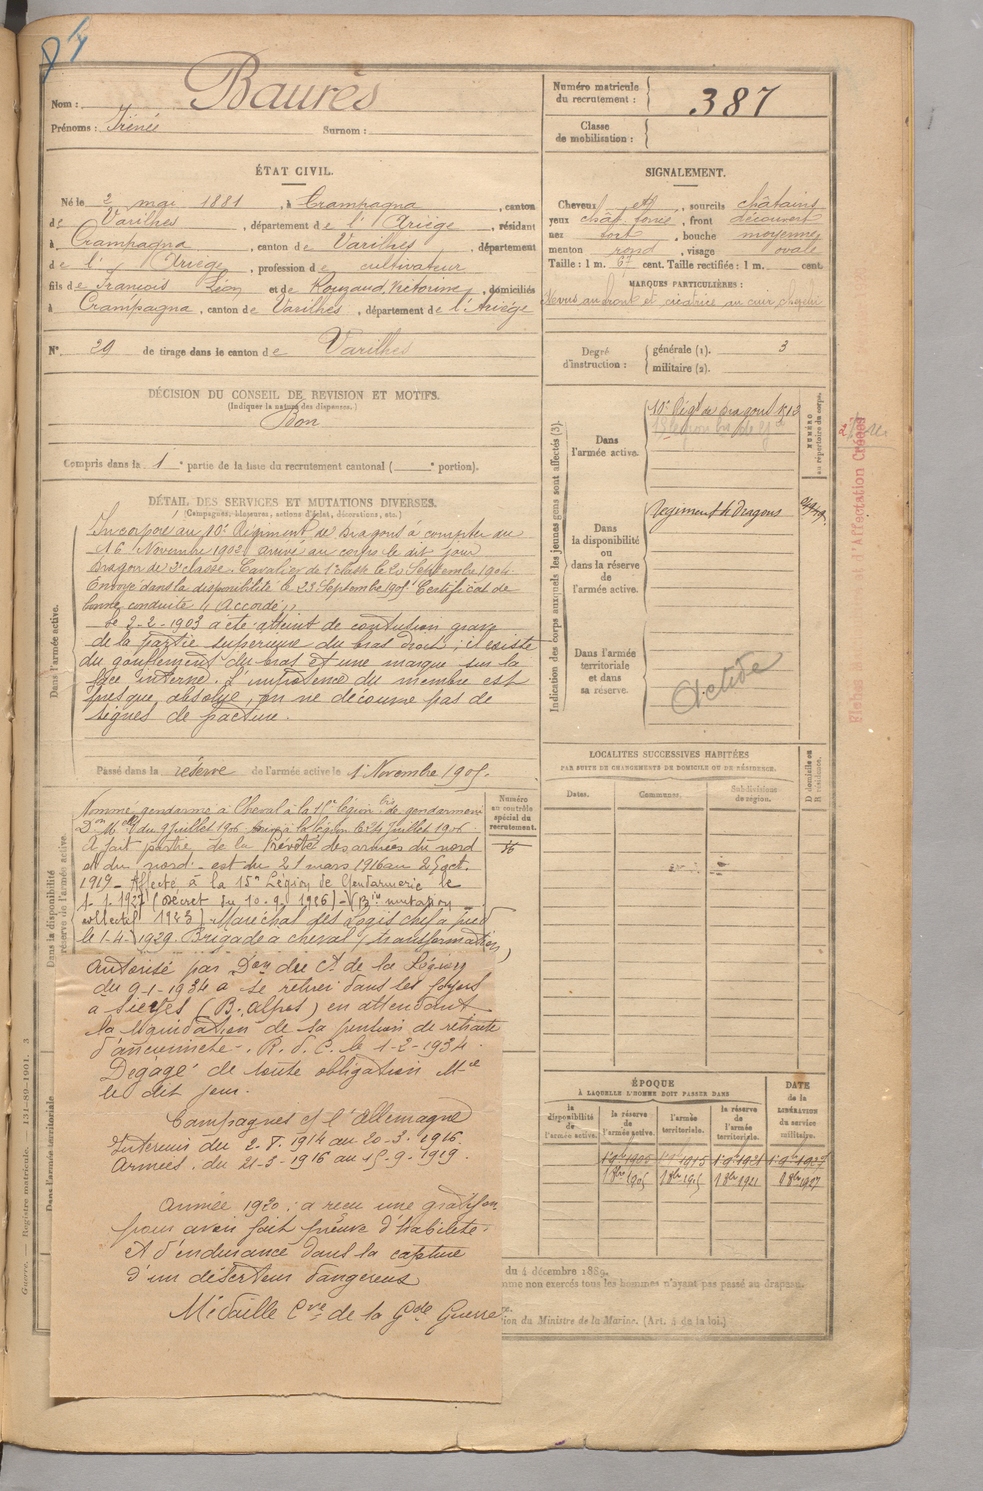 Nom : Baurès
Prénoms : Irénée Surnom :
Numéro matricule du recrutement : 387
Classe de mobilisation :
ÉTAT CIVIL.
Né le 2 mai 1881, à Crampagna, canton
de Varilhes, département de l'Ariège, résidant
à Crampagna, canton de Varilhes, département
de l'Ariège, profession de cultivateur
fils de François Léon et de Rouzaud Victorine, domiciliés
à Crampagna, canton de Varilhes, département de l'Ariège
N° 29 de tirage dans le canton de Varilhes
SIGNALEMENT.
Cheveux et, sourcils châtains
yeux chât. foncé, front découvert
nez fort, bouche moyenne
menton rond, visage ovale
Taille : 1 m. 67 cent. Taille rectifiée : 1 m. cent.
MARQUES PARTICULIÈRES :
Nevus au front et cicatrice au cuir chevelu
Degré d'instruction : générale (1). 3
militaire (2).
DÉCISION DU CONSEIL DE REVISION ET MOTIFS.
(Indiquer la nature des dispenses.)
Bon
Compris dans la 1e partie de la liste du recrutement cantonal ( e portion).
DÉTAIL DES SERVICES ET MUTATIONS DIVERSES.
(Campagnes, blessures, actions d'éclat, décorations, etc.)
Dans l'armée active.
Incorporé au 10e Régiment de Dragons à compter du
16 Novembre 1902, arrivé au corps le dit jour
Dragon de 2e classe. Cavalier de 1e classe le 20 Septembre 1904
Envoyé dans la disponibilité le 23 Septembre 1905 Certificat de
bonne conduite "Accordé"
Le 2-2-1903 a été atteint de contusion grave
de la partie supérieure du bras droit ; il existe
du gonflement du bras et une marque sur la
face interne. L'impotence du membre est
presque absolue, on ne découvre pas de
signes de fracture.
Passé dans la réserve de l'armée active le 1 Novembre 1905.
Dans la disponibilité
réserve de l'armée active.
Numéro au contrôle spécial du recrutement.
Nommé gendarme à Cheval à la 15e légion bis de gendarmerie
Don Melle du 9 Juillet 1906 Juillet 1906
A fait partie de la Prévôté des armées du nord
et du nord-est du 21 mars 1916 au 25 oct.
1919 - Affecté à la 15e Légion de Gendarmerie le
1-1-1927 (Décret du 10-9-1926) - (Bin mutation
collectif 1923). Maréchal des logis chef à pied
le 1-4-1929. Brigade à cheval (transformation)
autorisé par Don du Ct de la Légion
du 9-1-1934 à se retirer dans ses foyers
à Sieyes (B. Alpes) en attendant
la liquidation de sa pension de retraite
d'ancienneté -. R. d. C. le 1-2-1934.
Dégagé de toute obligation Mre
le dit jour.
Campagnes c/ l'Allemagne
Intérieur du 2-8-1914 au 20-3-1916.
Armées. du 21-3-1916 au 15-9-1919.
Année 1920 : a reçu une gratifon
pour avoir fait preuve d'habileté
et d'endurance dans la capture
d'un déserteur dangereux
Médaille Cve de la Gde Guerre
Indication des corps auxquels les jeunes gens sont affectés (3).
NUMÉRO au répertoire du corps.
Dans l'armée active.
10e Régt de Dragons
Dans la disponibilité ou dans la réserve de l'armée active.
Régiment de dragons
Dans l'armée territoriale et dans sa réserve.
LOCALITÉS SUCCESSIVES HABITÉES
PAR SUITE DE CHANGEMENTS DE DOMICILE OU DE RÉSIDENCE.
Dates. Communes. Subdivisions de région. D domicile ou R résidence.
ÉPOQUE
À LAQUELLE L'HOMME DOIT PASSER DANS
la disponibilité de l'armée active. la réserve de l'armée active. l'armée territoriale. la réserve de l'armée territoriale. DATE de la LIBÉRATION du service militaire.
1 9 1905 1 9 1915 1 9 1921 1 9 1927
1 8bre 1905 1 8bre 1915 1 8bre 1921 1 8bre 1927
du 4 décembre 1889.
mme non exercés tous les hommes n'ayant pas passé au drapeau.
ion du Ministre de la Marine. (Art. 4 de la loi.)
Guerre. — Registre matricule. — 131-89-1901. 3
Dans l'armée territoriale